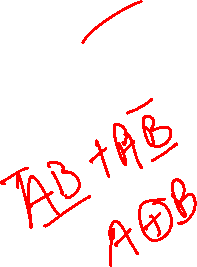 A̅B + AB̅
A⊕B